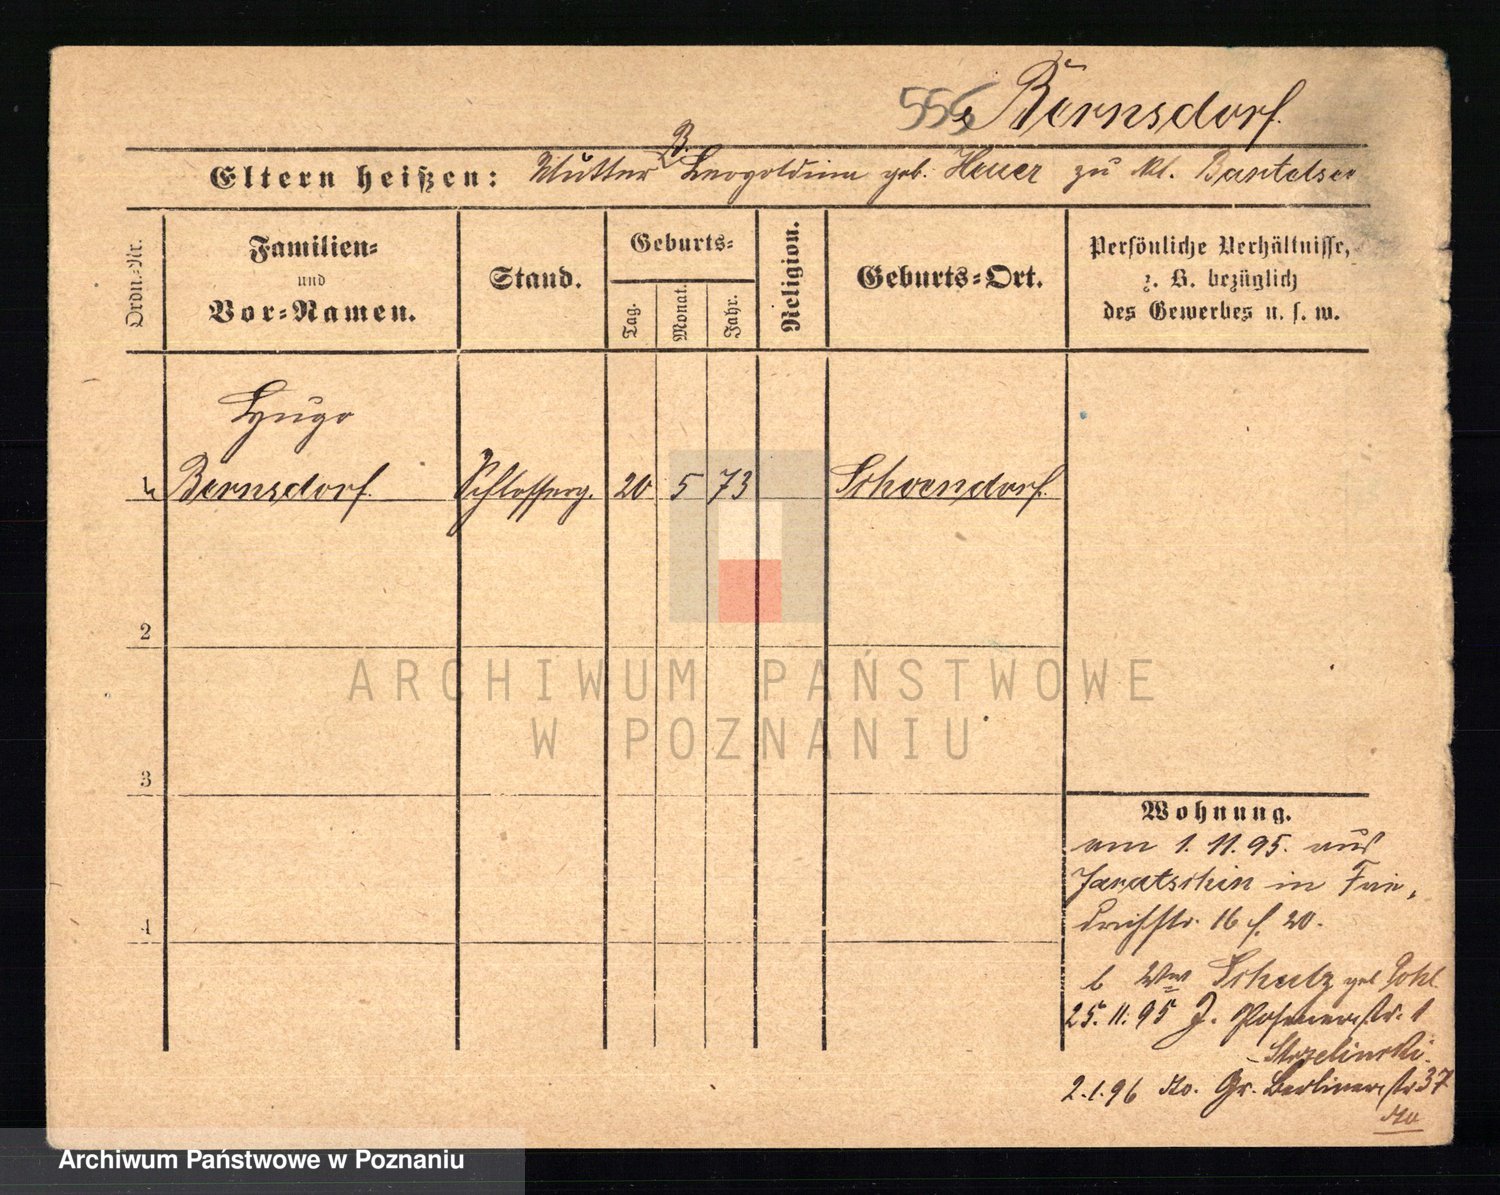 556 Bernsdorf.
Eltern heißen: Mutter B. Leopoldine geb. Heuer zu kl. Bartelsee
Ordn.-Nr.
Familien-
und
Vor-Namen.
Stand.
Geburts-
Tag.
Monat.
Jahr.
Religion.
Geburts-Ort.
Persönliche Verhältnisse,
z. B. bezüglich
des Gewerbes u. s. w.
Hugo
1 Bernsdorf. Schlosserg. 20 5 73 Schoendorf.
2
3
4
ARCHIWUM PAŃSTWOWE
W POZNANIU
Wohnung.
am 1. 11. 95. aus
Jaratschin in Frie-
drichstr. 16 f. 20.
b Ww Schulz geb Pohl
25. 11. 95 J. Posenerstr. 1
Strzelinski.
2.1.96 Ko. Gr. Berlinerstr 37
Archiwum Państwowe w Poznaniu